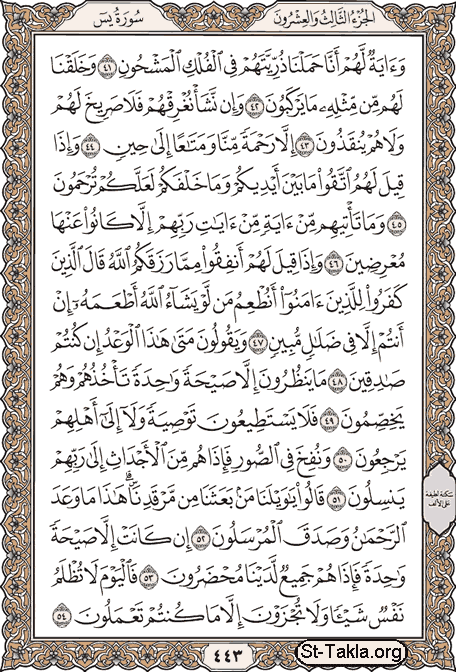 الجزء الثالث والعشرون
سورة يس
وَءَايَةٌ لَّهُمْ أَنَّا حَمَلْنَا ذُرِّيَّتَهُمْ فِي الْفُلْكِ الْمَشْحُونِ ٤١ وَخَلَقْنَا
لَهُم مِّن مِّثْلِهِ مَا يَرْكَبُونَ ٤٢ وَإِن نَّشَأْ نُغْرِقْهُمْ فَلَا صَرِيخَ لَهُمْ
وَلَا هُمْ يُنقَذُونَ ٤٣ إِلَّا رَحْمَةً مِّنَّا وَمَتَاعًا إِلَىٰ حِينٍ ٤٤ وَإِذَا
قِيلَ لَهُمُ اتَّقُوا مَا بَيْنَ أَيْدِيكُمْ وَمَا خَلْفَكُمْ لَعَلَّكُمْ تُرْحَمُونَ
٤٥ وَمَا تَأْتِيهِم مِّنْ ءَايَةٍ مِّنْ ءَايَاتِ رَبِّهِمْ إِلَّا كَانُوا عَنْهَا
مُعْرِضِينَ ٤٦ وَإِذَا قِيلَ لَهُمْ أَنفِقُوا مِمَّا رَزَقَكُمُ اللَّهُ قَالَ الَّذِينَ
كَفَرُوا لِلَّذِينَ ءَامَنُوا أَنُطْعِمُ مَن لَّوْ يَشَاءُ اللَّهُ أَطْعَمَهُ إِنْ
أَنتُمْ إِلَّا فِي ضَلَالٍ مُّبِينٍ ٤٧ وَيَقُولُونَ مَتَىٰ هَٰذَا الْوَعْدُ إِن كُنتُمْ
صَادِقِينَ ٤٨ مَا يَنظُرُونَ إِلَّا صَيْحَةً وَاحِدَةً تَأْخُذُهُمْ وَهُمْ
يَخِصِّمُونَ ٤٩ فَلَا يَسْتَطِيعُونَ تَوْصِيَةً وَلَا إِلَىٰ أَهْلِهِمْ
يَرْجِعُونَ ٥٠ وَنُفِخَ فِي الصُّورِ فَإِذَا هُم مِّنَ الْأَجْدَاثِ إِلَىٰ رَبِّهِمْ
يَنسِلُونَ ٥١ قَالُوا يَاوَيْلَنَا مَن بَعَثَنَا مِن مَّرْقَدِنَا ۜ ۗ هَٰذَا مَا وَعَدَ
الرَّحْمَٰنُ وَصَدَقَ الْمُرْسَلُونَ ٥٢ إِن كَانَتْ إِلَّا صَيْحَةً
وَاحِدَةً فَإِذَا هُمْ جَمِيعٌ لَّدَيْنَا مُحْضَرُونَ ٥٣ فَالْيَوْمَ لَا تُظْلَمُ
نَفْسٌ شَيْئًا وَلَا تُجْزَوْنَ إِلَّا مَا كُنتُمْ تَعْمَلُونَ ٥٤
سكتة لطيفة
على الألف
٤٤٣
St-Takla.org